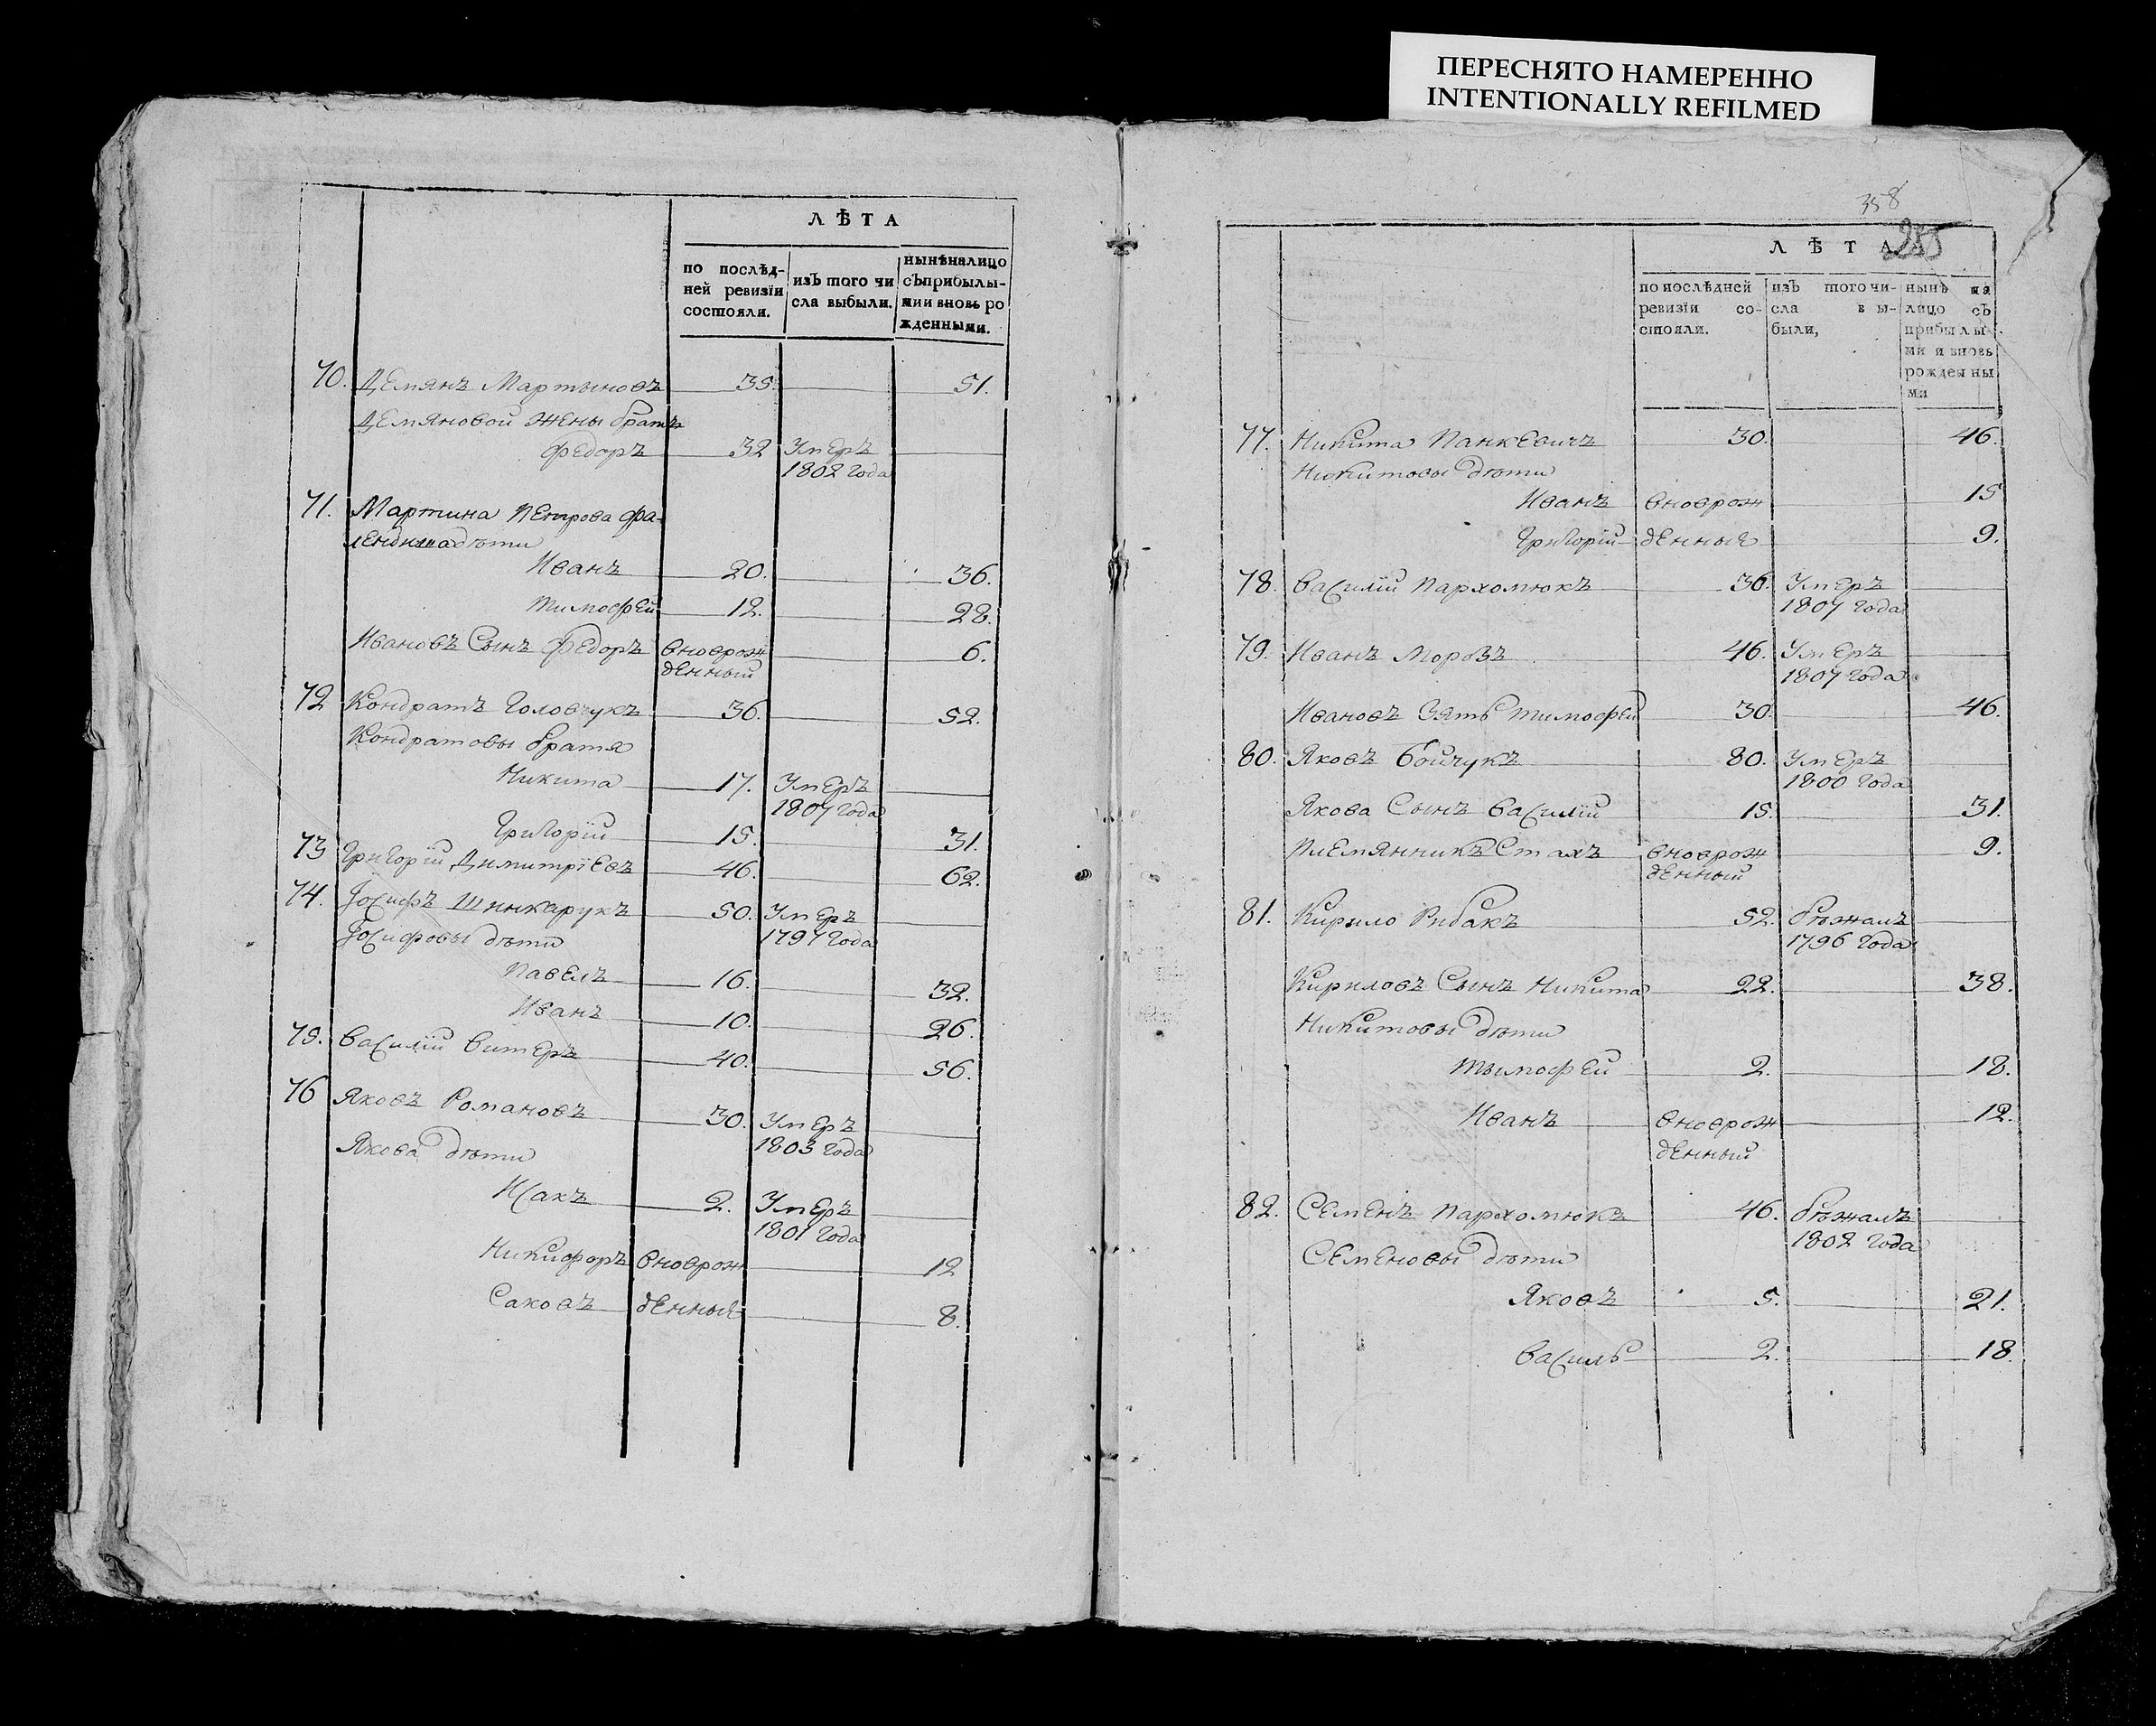 ПЕРЕСНЯТО НАМЕРЕННО
INTENTIONALLY REFILMED
ЛѢТА
по послѢд-
ней ревизїи
состояли.
изЪ того чи
сла выбыли.
нынѢналицо
сЪприбылы-
ми и вновь ро
жденными.
70. Демянъ Мартыновъ 35. 51.
Демяновой жены братъ
Федоръ 32 Умеръ
1802 года
71. Мартина Петрова Фа-
дѣти
Иванъ 20. 36.
Тимофей 12. 28.
Ивановъ Сынъ Федоръ вноврож 6.
денный
72 Кондратъ Головчукъ 36. 52.
Кондратовы братя
Никита 17. Умеръ
1807 года
Григорїй 15. 31.
73 Григорїй Димитрїевъ 46. 62.
74. Їосифъ Шинкарукъ 50. Умеръ
Їосифовы дѣти 1797 года
Павелъ 16. 32.
Иванъ 10. 26.
75. Василїй Витеръ 40. 56.
76 Яковъ Романовъ 30. Умеръ
1803 года
Якова дѣти
Исакъ 2. Умеръ
1801 года
Никифоръ вноврож 12
Саковъ денныя 8.
358
255
ЛѢТА
по послѢдней
ревизїи со-
стояли.
изЪ того чи-
сла вы-
были,
нынѢ на
лицо сЪ
прибылы-
ми и вновь
рожденны
ми
77. Никита Панкевичъ 30. 46.
Никитовы дѣти
Иванъ вноврож 15
Григорїй денныя 9.
78. Василїй Пархомюкъ 36. Умеръ
1807 года
79. Иванъ Морозъ 46. Умеръ
1807 года
Ивановъ Зять Тимофей 30. 46.
80. Яковъ Бойчукъ 80. Умеръ
1800 года
Якова Сынъ Василїй 15. 31.
Племянникъ Стахъ вноврож 9.
денный
81. Кирило Рибакъ 52. бѣжалъ
1796 года
Кириловъ Сынъ Никита 22. 38.
Никитовы дѣти
Тымофей 2. 18.
Иванъ вноврож 12.
денный
82. Семенъ Пархомюкъ 46. бѣжалъ
1802 года
Семеновы дѣти
Яковъ 5. 21.
Василь 2. 18.